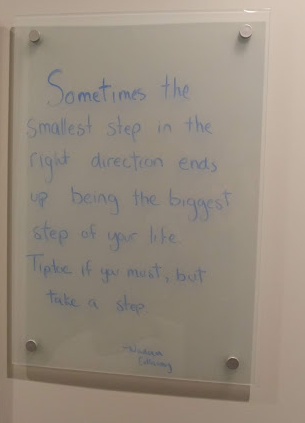 Sometimes the
smallest step in the
right direction ends
up being the biggest
step of your life.
Tiptoe if you must, but
take a step.